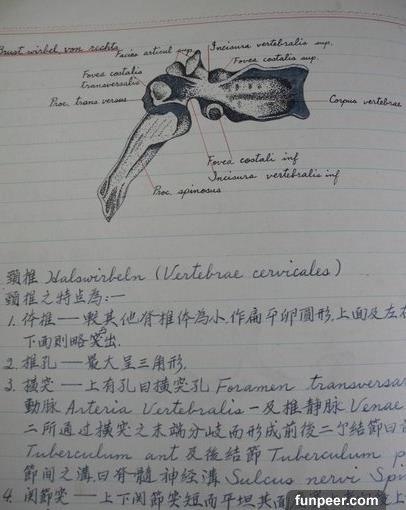 Brustwirbel von rechts
Facies articul sup.
Incisura vertebralis sup.
Fovea costalis sup.
Fovea costalis
transversalis
Proc. transversus
Corpus vertebrae
Fovea costali inf
Incisura vertebralis inf
Proc. spinosus
頸椎 Halswirbeln (Vertebrae cervicales)
頸椎之特点為:—
1. 体椎——較其他脊椎体為小,作扁平卵圓形,上面及左右
下面則略突出.
2. 椎孔——最大呈三角形.
3. 横突——上有孔曰横突孔 Foramen transversar
動脈 Arteria Vertebralis 一及椎静脉 Venae
二所通过横突之末端分岐而形成前後二个結節曰
Tuberculum ant 及後結節 Tuberculum p
節间之溝曰脊髓神経溝 Sulcus nervi Spi
4. 関節突——上下関節突短而平坦其面
funpeer.com